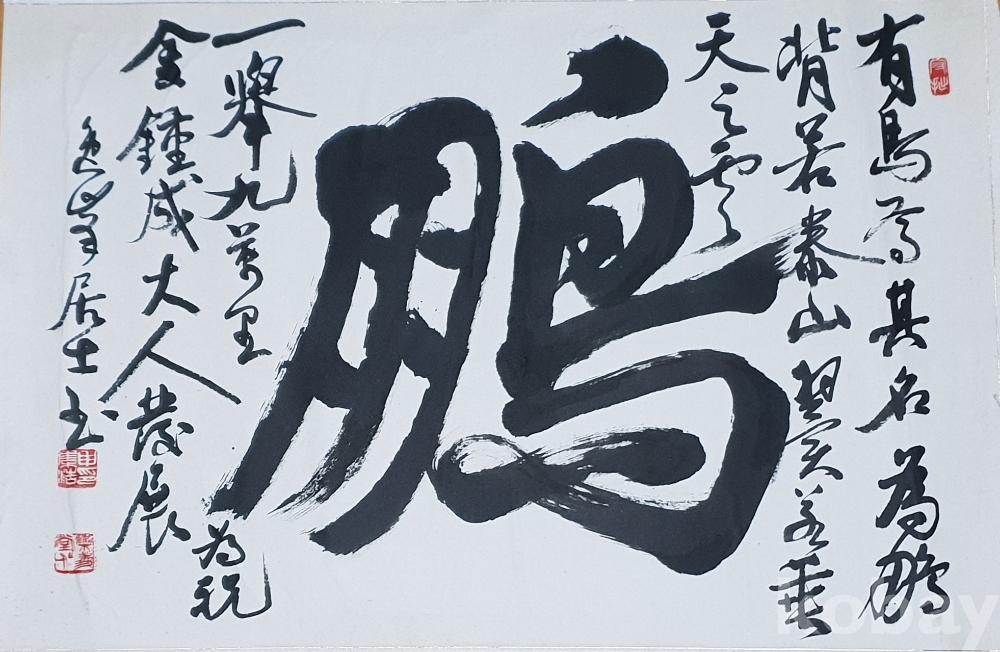 有鳥焉其名為鵬
背若泰山翼若垂
天之雲
鵬
一舉九萬里 為祝
金鍾成大人發展
逸峯居士書
kobay